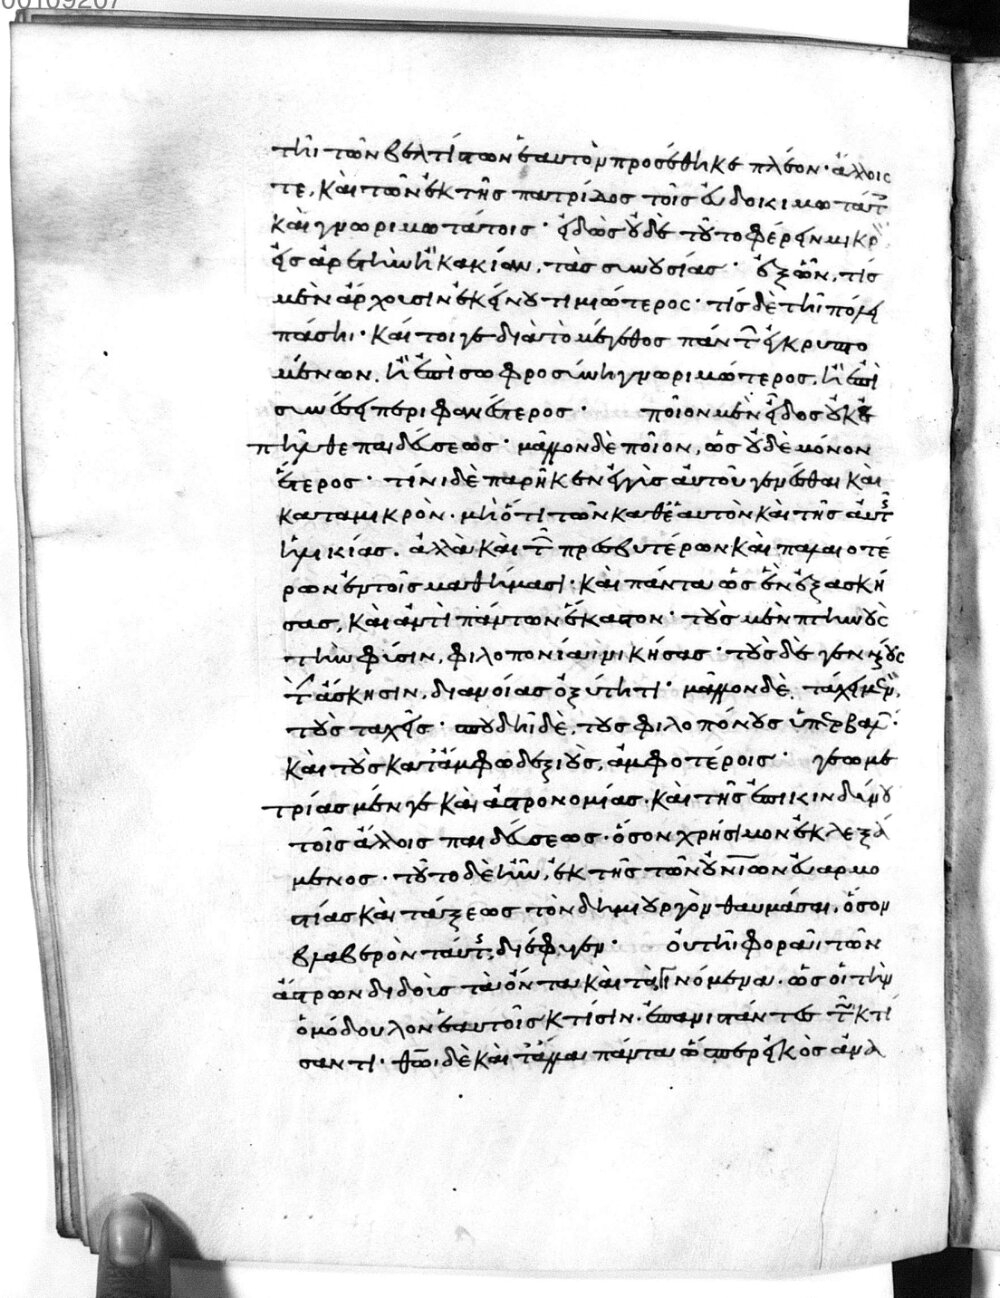 00109207
τῆι τῶν βελτίστων ἑαυτὸν προσέθηκε πλέον· ἄλλοις
τε, καὶ τῶν ἐκ τῆς πατρίδος τοῖς εὐδοκιμωτάτ
καὶ γνωριμωτάτοις· εἰδὼς οὐδὲ τοῦτο φέρειν μικρ
εἰς ἀρετὴν ἢ κακίαν, τὰς συνουσίας· ἐξ ὧν, τίς
μὲν ἄρχουσιν ἐκείνου τιμιώτερος· τίς δὲ τῆι πόλει
πάσηι· καί τοι γε διὰ τὸ μέγεθος πάντ ἐγκρυπτο
μένων, ἢ ἐπὶ σωφροσύνη γνωριμώτερος, ἢ ἐπὶ
συνέσει περιφανέστερος· ποῖον μὲν εἶδος οὐκ ἐ
πῆλθε παιδεύσεως· μᾶλλον δὲ ποῖον, ὡς οὐδὲ μόνον
ἕτερος· τίνι δὲ παρῆκεν ἐγγὺς αὐτοῦ γενέσθαι καὶ
κατα μικρὸν· μὴ ὅτι τῶν καθ ἑαυτὸν καὶ τῆς αὐτ
ἡλικίας. ἀλλὰ καὶ τ πρεσβυτέρων καὶ παλαιοτέ
ρων ἐν τοῖς μαθήμασι· καὶ πάντα ὡς ἓν ἐξασκή
σας, καὶ ἀντὶ πάντων ἕκαστον· τοὺς μὲν πτηνοὺς
τὴν φύσιν, φιλοπονίαι νικήσας· τοὺς δὲ γενναίους
τ ἄσκησιν, διανοίας ὀξύτητι· μᾶλλον δὲ, τάχει μὲν,
τοὺς ταχεῖς· σπουδῆι δὲ, τοὺς φιλοπόνους ὑπερβαλ·
καὶ τοὺς κατ ἄμφω δεξιοὺς, ἀμφοτέροις· γεωμε
τρίας μέν γε καὶ ἀστρονομίας. καὶ τῆς ἐπικινδύνου
τοῖς ἄλλοις παιδεύσεως· ὅσον χρήσιμον ἐκλεξά
μενος· τοῦτο δὲ ἦν, ἐκ τῆς τῶν οὐνίων εὐαρμο
στίας καὶ τάξεως τὸν δημιουργὸν θαυμάσαι, ὅσον
βλαβερὸν ταύτης διέφυγεν· οὐ τῆι φορᾶι τῶν
ἄστρων διδοὺς τὰ ὄντα καὶ τὰ γινόμενα. ὡς οἱ τὴν
ὁμόδουλον ἑαυτοῖς κτίσιν. ἐπανιστάντες τῶ κτί
σαντι· θῶι δὲ καὶ τἆλλα πάντα ὥσπερ εἰκὸς ἀνα